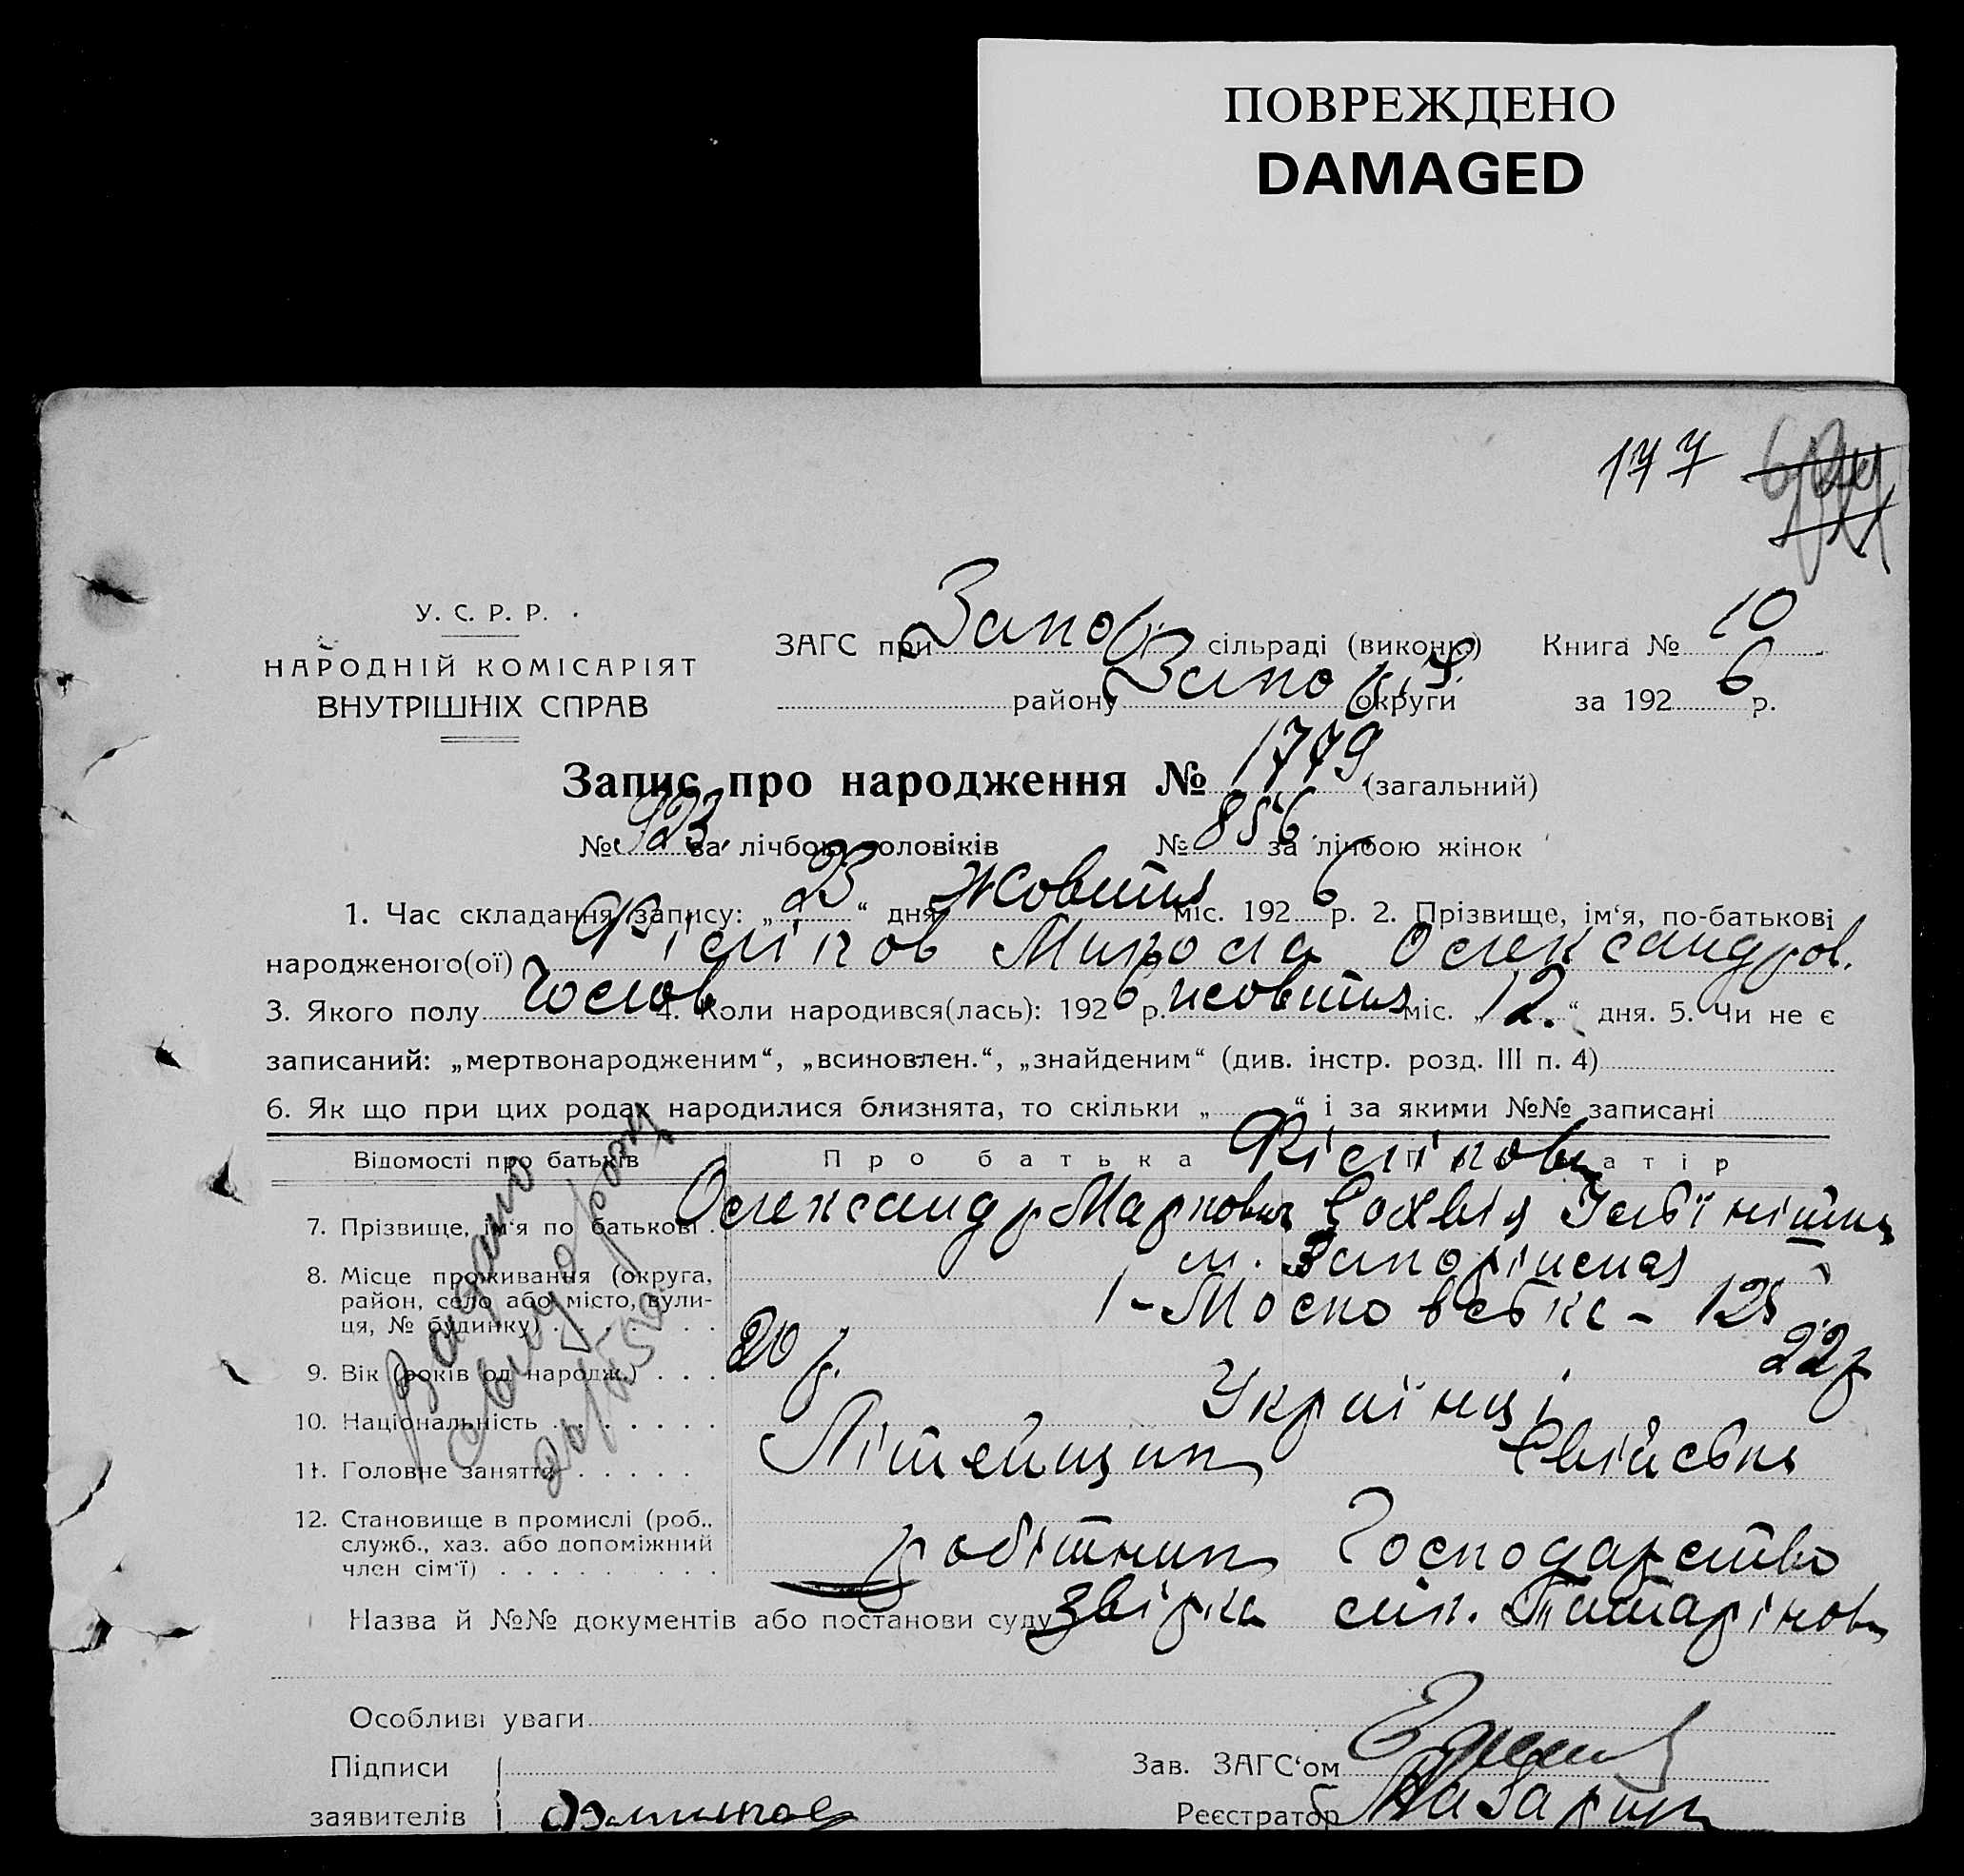 ПОВРЕЖДЕНО
DAMAGED
177
У. С. Р. Р.
НАРОДНІЙ КОМІСАРІЯТ
ВНУТРІШНІХ СПРАВ
ЗАГС при Запоr. сільраді (виконк.) Книга № 10
району округи за 1926 р.
Запис про народження № 1779 (загальний)
№ 923 за лічбою чоловіків № 856 за лічбою жінок
1. Час складання запису: „23“ дня жовтня міс. 1926 р. 2. Прізвище, ім‘я, по-батькові
народженого(ої) Філіпов Микола Олександров.
3. Якого полу чолов 4. Коли народився(лась): 1926 р. жовтня міс. „12.“ дня. 5. Чи не є
записаний: „мертвонародженим“, „всиновлен.“, „знайденим“ (див. інстр. розд. III п. 4)
6. Як що при цих родах народилися близнята, то скільки „ “ і за якими №№ записані
Відомості про батьків Про батька Про матір
Філіпови
7. Прізвище, ім‘я по батькові Олександр Маркович
8. Місце проживання (округа, м. Запоріжжя
район, село або місто, вули-
ця, № будинку) 1-Московська - 125
9. Вік (років од народж.) 20 р. 22 р
10. Національність Українці
11. Головне заняття Літейщик Свійське
12. Становище в промислі (роб.,
служб., хаз. або допоміжний робітник Господарство
член сім‘ї)
Назва й №№ документів або постанови суду звірка
Особливі уваги
Підписи Зав. ЗАГС‘ом
заявителів Реєстратор
Видано